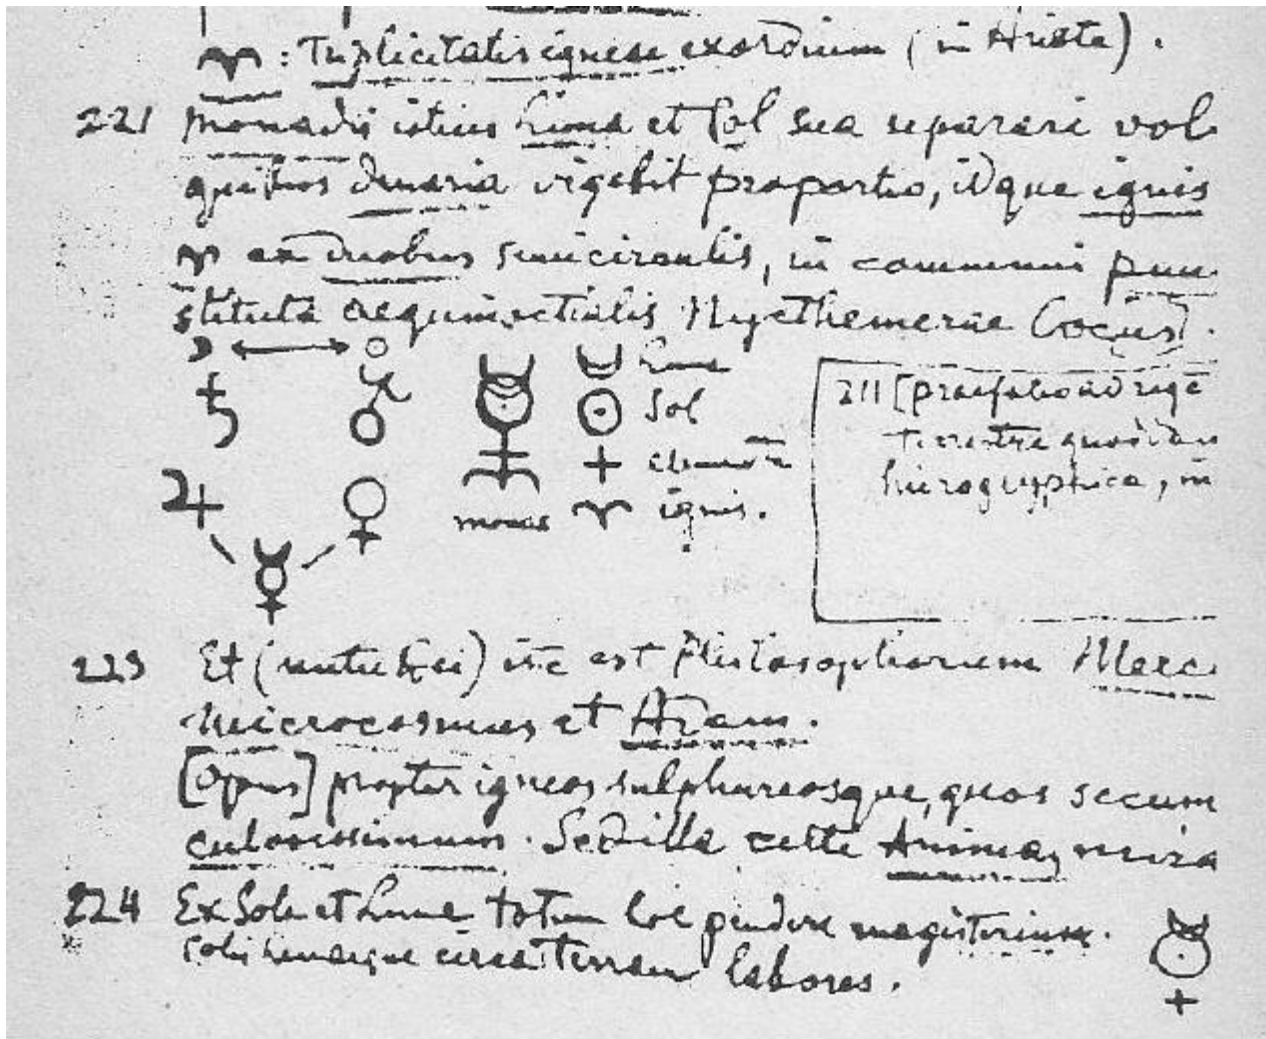 ♈ : Triplicitatis igneae exordium (in Ariete).
221 Monadis istius Luna et Sol sua separari vol
quibus denaria vigebit proportio, idque ignis
♈ ex duobus semicirculis, in communi pun
stituta aequinoctialis Nycthemerae Locus].
☽ ↔ ☉
♄ ♂ Luna
☉ Sol
+ elementa
monas ♈ ignis.
♃ ♀
☿
211 [praefatio ad rege
terrestre quosdam
hieroglyphica, in
223 Et (nutu Dei) iste est Philosophorum Merc
microcosmus et Adam.
[Opus] propter igneos sulphureosque, quos secum
culosissimum. Sed illa certe Anima, mira
224 Ex Sole et Luna totum hoc pendere magisterium.
Solis Lunaeque circa Terram labores.